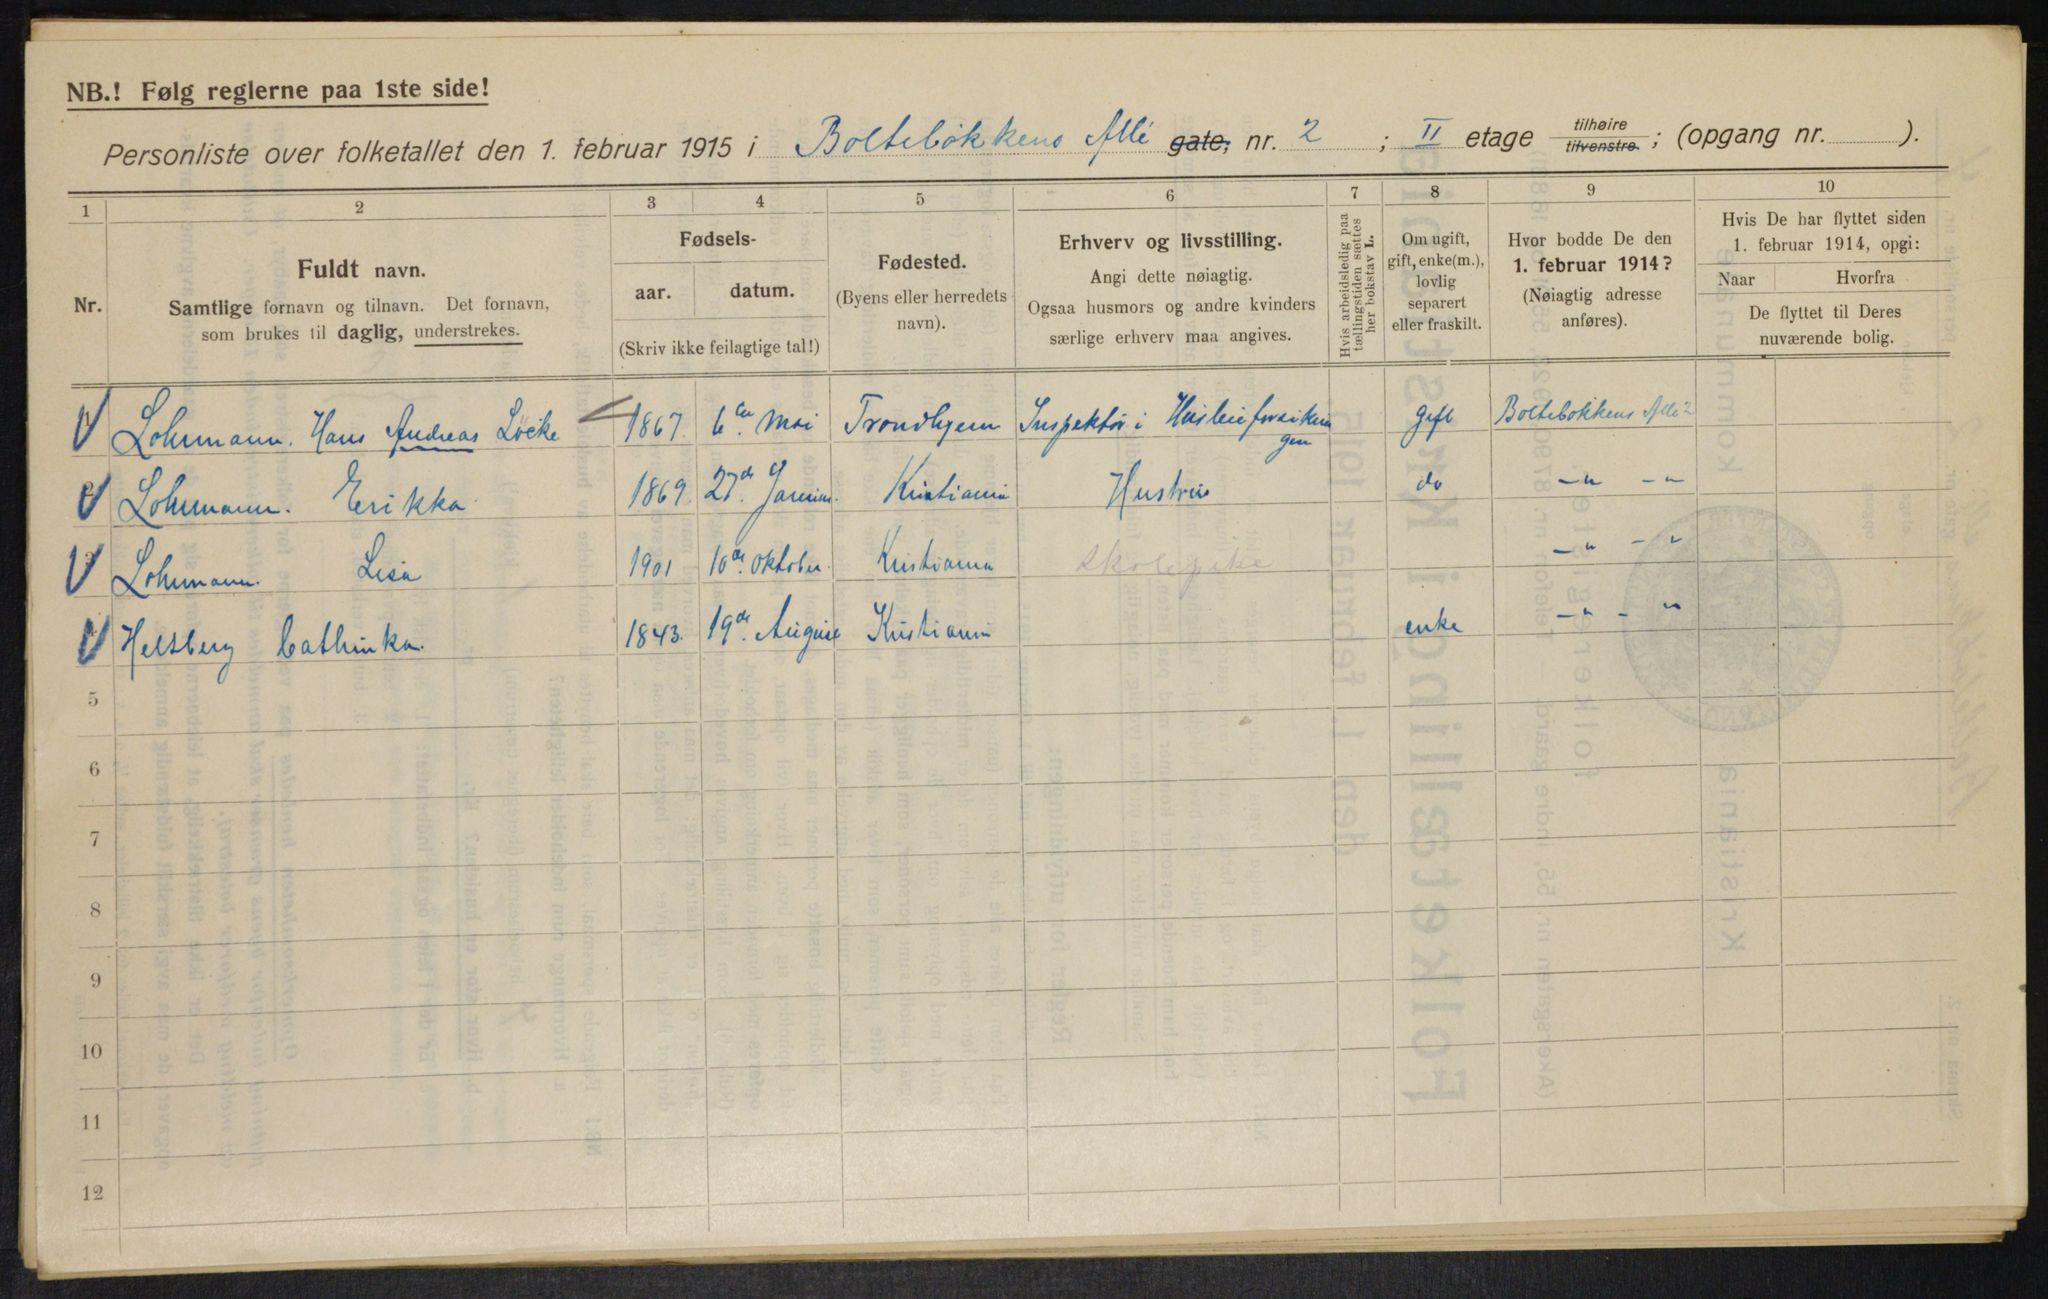 NB.! Følg reglerne paa 1ste side!
Personliste over folketallet den 1. februar 1915 i Bolteløkkens Allé gate, nr. 2 ; II etage tilhøire tilvenstre. ; (opgang nr. ).
1 2 3 4 5 6 7 8 9 10
Nr.
Fuldt navn.
Samtlige fornavn og tilnavn. Det fornavn,
som brukes til daglig, understrekes.
Fødsels-
aar. datum.
(Skriv ikke feilagtige tal!)
Fødested.
(Byens eller herredets
navn).
Erhverv og livsstilling.
Angi dette nøiagtig.
Ogsaa husmors og andre kvinders
særlige erhverv maa angives.
Hvis arbeidsledig paa
tællingstiden sættes
her bokstav L.
Om ugift,
gift, enke(m.),
lovlig
separert
eller fraskilt.
Hvor bodde De den
1. februar 1914?
(Nøiagtig adresse
anføres).
Hvis De har flyttet siden
1. februar 1914, opgi:
Naar Hvorfra
De flyttet til Deres
nuværende bolig.
1 Lohrmann. Hans Andreas Löcke 1867. 6te Mai Trondhjem Inspektør i gift Bolteløkkens Allé 2
2 Lohrmann. Erikka 1869. 27de Januar. Kristiania Hustru do —"— —"
3 Lohrmann. Lisa 1901 10de Oktober. Kristiania Skolepike —"— —"
4 Heltberg Cathinka. 1843. 19de August Kristiania enke —"— —"
5
6
7
8
9
10
11
12